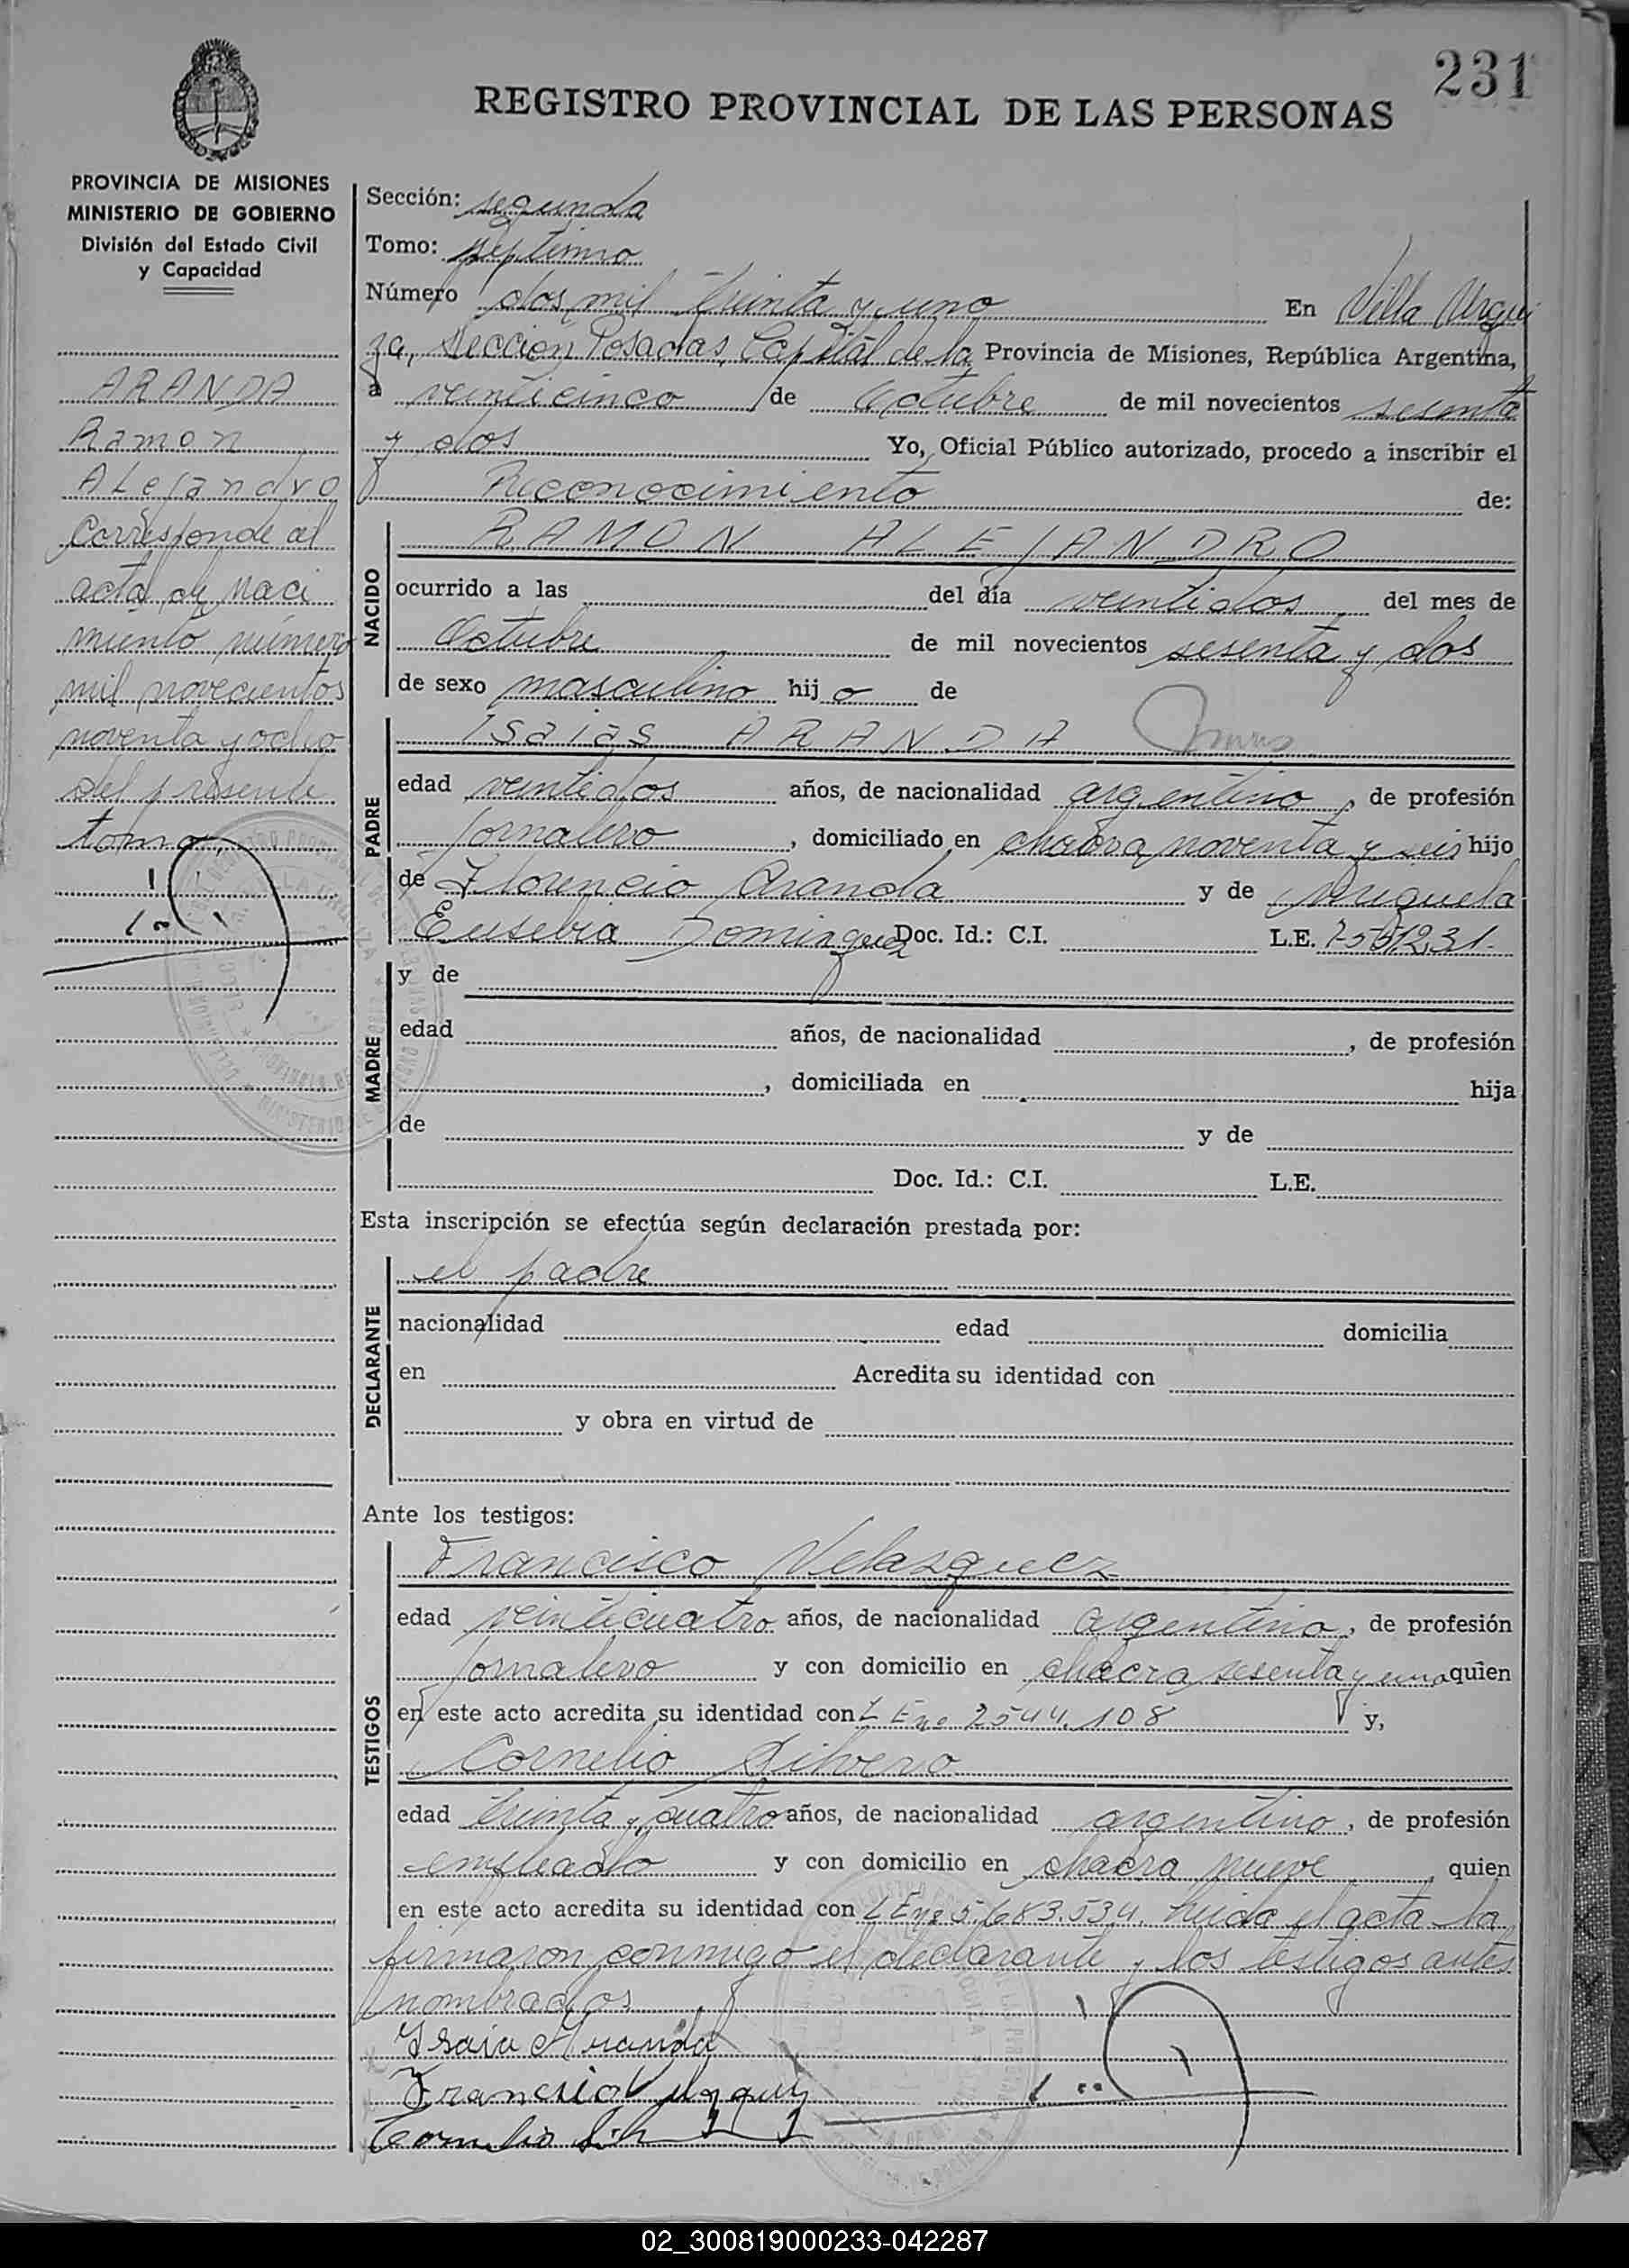 231
REGISTRO PROVINCIAL DE LAS PERSONAS
PROVINCIA DE MISIONES
MINISTERIO DE GOBIERNO
División del Estado Civil
y Capacidad
ARANDA
Ramon
Alejandro
Corresponde al
acta de naci
miento número
mil novecientos
noventa y ocho
del presente
tomo
Sección: segunda
Tomo: septimo
Número dos mil treinta y uno En Villa Urqui
za, Sección Posadas, Capital de la Provincia de Misiones, República Argentina,
a veinticinco de Octubre de mil novecientos sesenta
y dos Yo, Oficial Público autorizado, procedo a inscribir el
Reconocimiento de:
NACIDO
RAMON ALEJANDRO
ocurrido a las del día veintidos del mes de
Octubre de mil novecientos sesenta y dos
de sexo masculino hijo de
PADRE
Isaias ARANDA
edad veintidos años, de nacionalidad argentino, de profesión
jornalero, domiciliado en chacra noventa y seis hijo
de Florencio Aranda y de Miguela
Eusebia Dominguez Doc. Id.: C.I. L.E. 7551231.
MADRE
y de
edad años, de nacionalidad , de profesión
, domiciliada en hija
de y de
Doc. Id.: C.I. L.E.
Esta inscripción se efectúa según declaración prestada por:
DECLARANTE
el padre
nacionalidad edad domicilia
en Acredita su identidad con
y obra en virtud de
Ante los testigos:
TESTIGOS
Francisco Velazquez
edad veinticuatro años, de nacionalidad argentino, de profesión
jornalero y con domicilio en chacra sesenta y una quien
en este acto acredita su identidad con L E nº 2544.108 y,
Cornelio Silvero
edad treinta y cuatro años, de nacionalidad argentino, de profesión
empleado y con domicilio en chacra nueve quien
en este acto acredita su identidad con L E nº 5.683.534. Leida el acta la
firmaron conmigo el declarante y los testigos antes
nombrados
Isaia Aranda
02_300819000233-042287